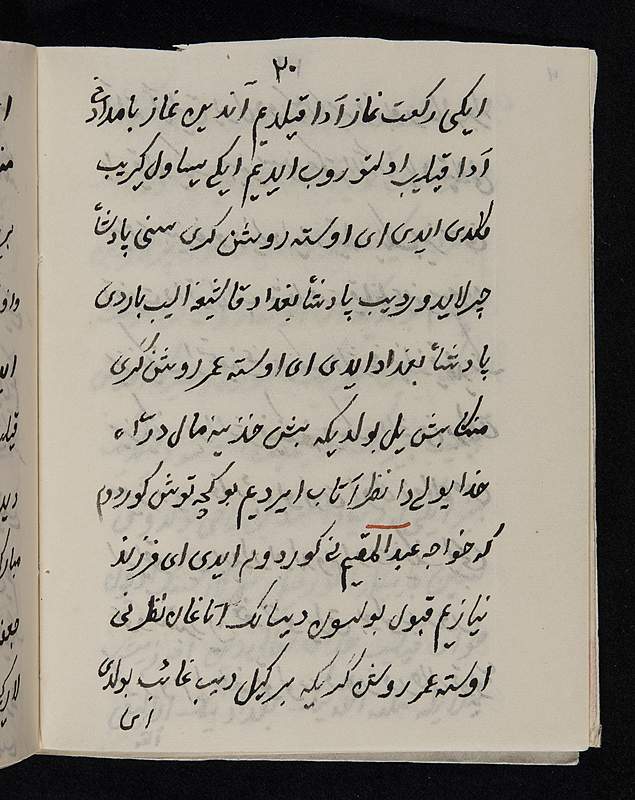 ۲۰
ایکی رکعت نماز آدا قیلدیم آندین نماز بامدادنی
آدا قیلیب اولتوروب ایدیم ایکی یساول کریب
کلدی ایدی ای اوسته روشن کری سنی پادشاه
چرلایدور دیب پادشاه بغداد قاشیغه الیب باردی
پادشاه بغداد ایدی ای اوسته عمر روشن کری
منکا بش یل بولدیکه بش خذینه مال درآه
خدا یولی دا نظر آتاب ایردیم بو کچه توش کوردوم
که خواجه عبدالمقیم نی کوردوم ایدی ای فرزند
نیازیم قبول بولسون دیسانک آتاغان نظر نی
اوسته عمر روشن کریکه بیرکیل دیب غائب بولدی
ای